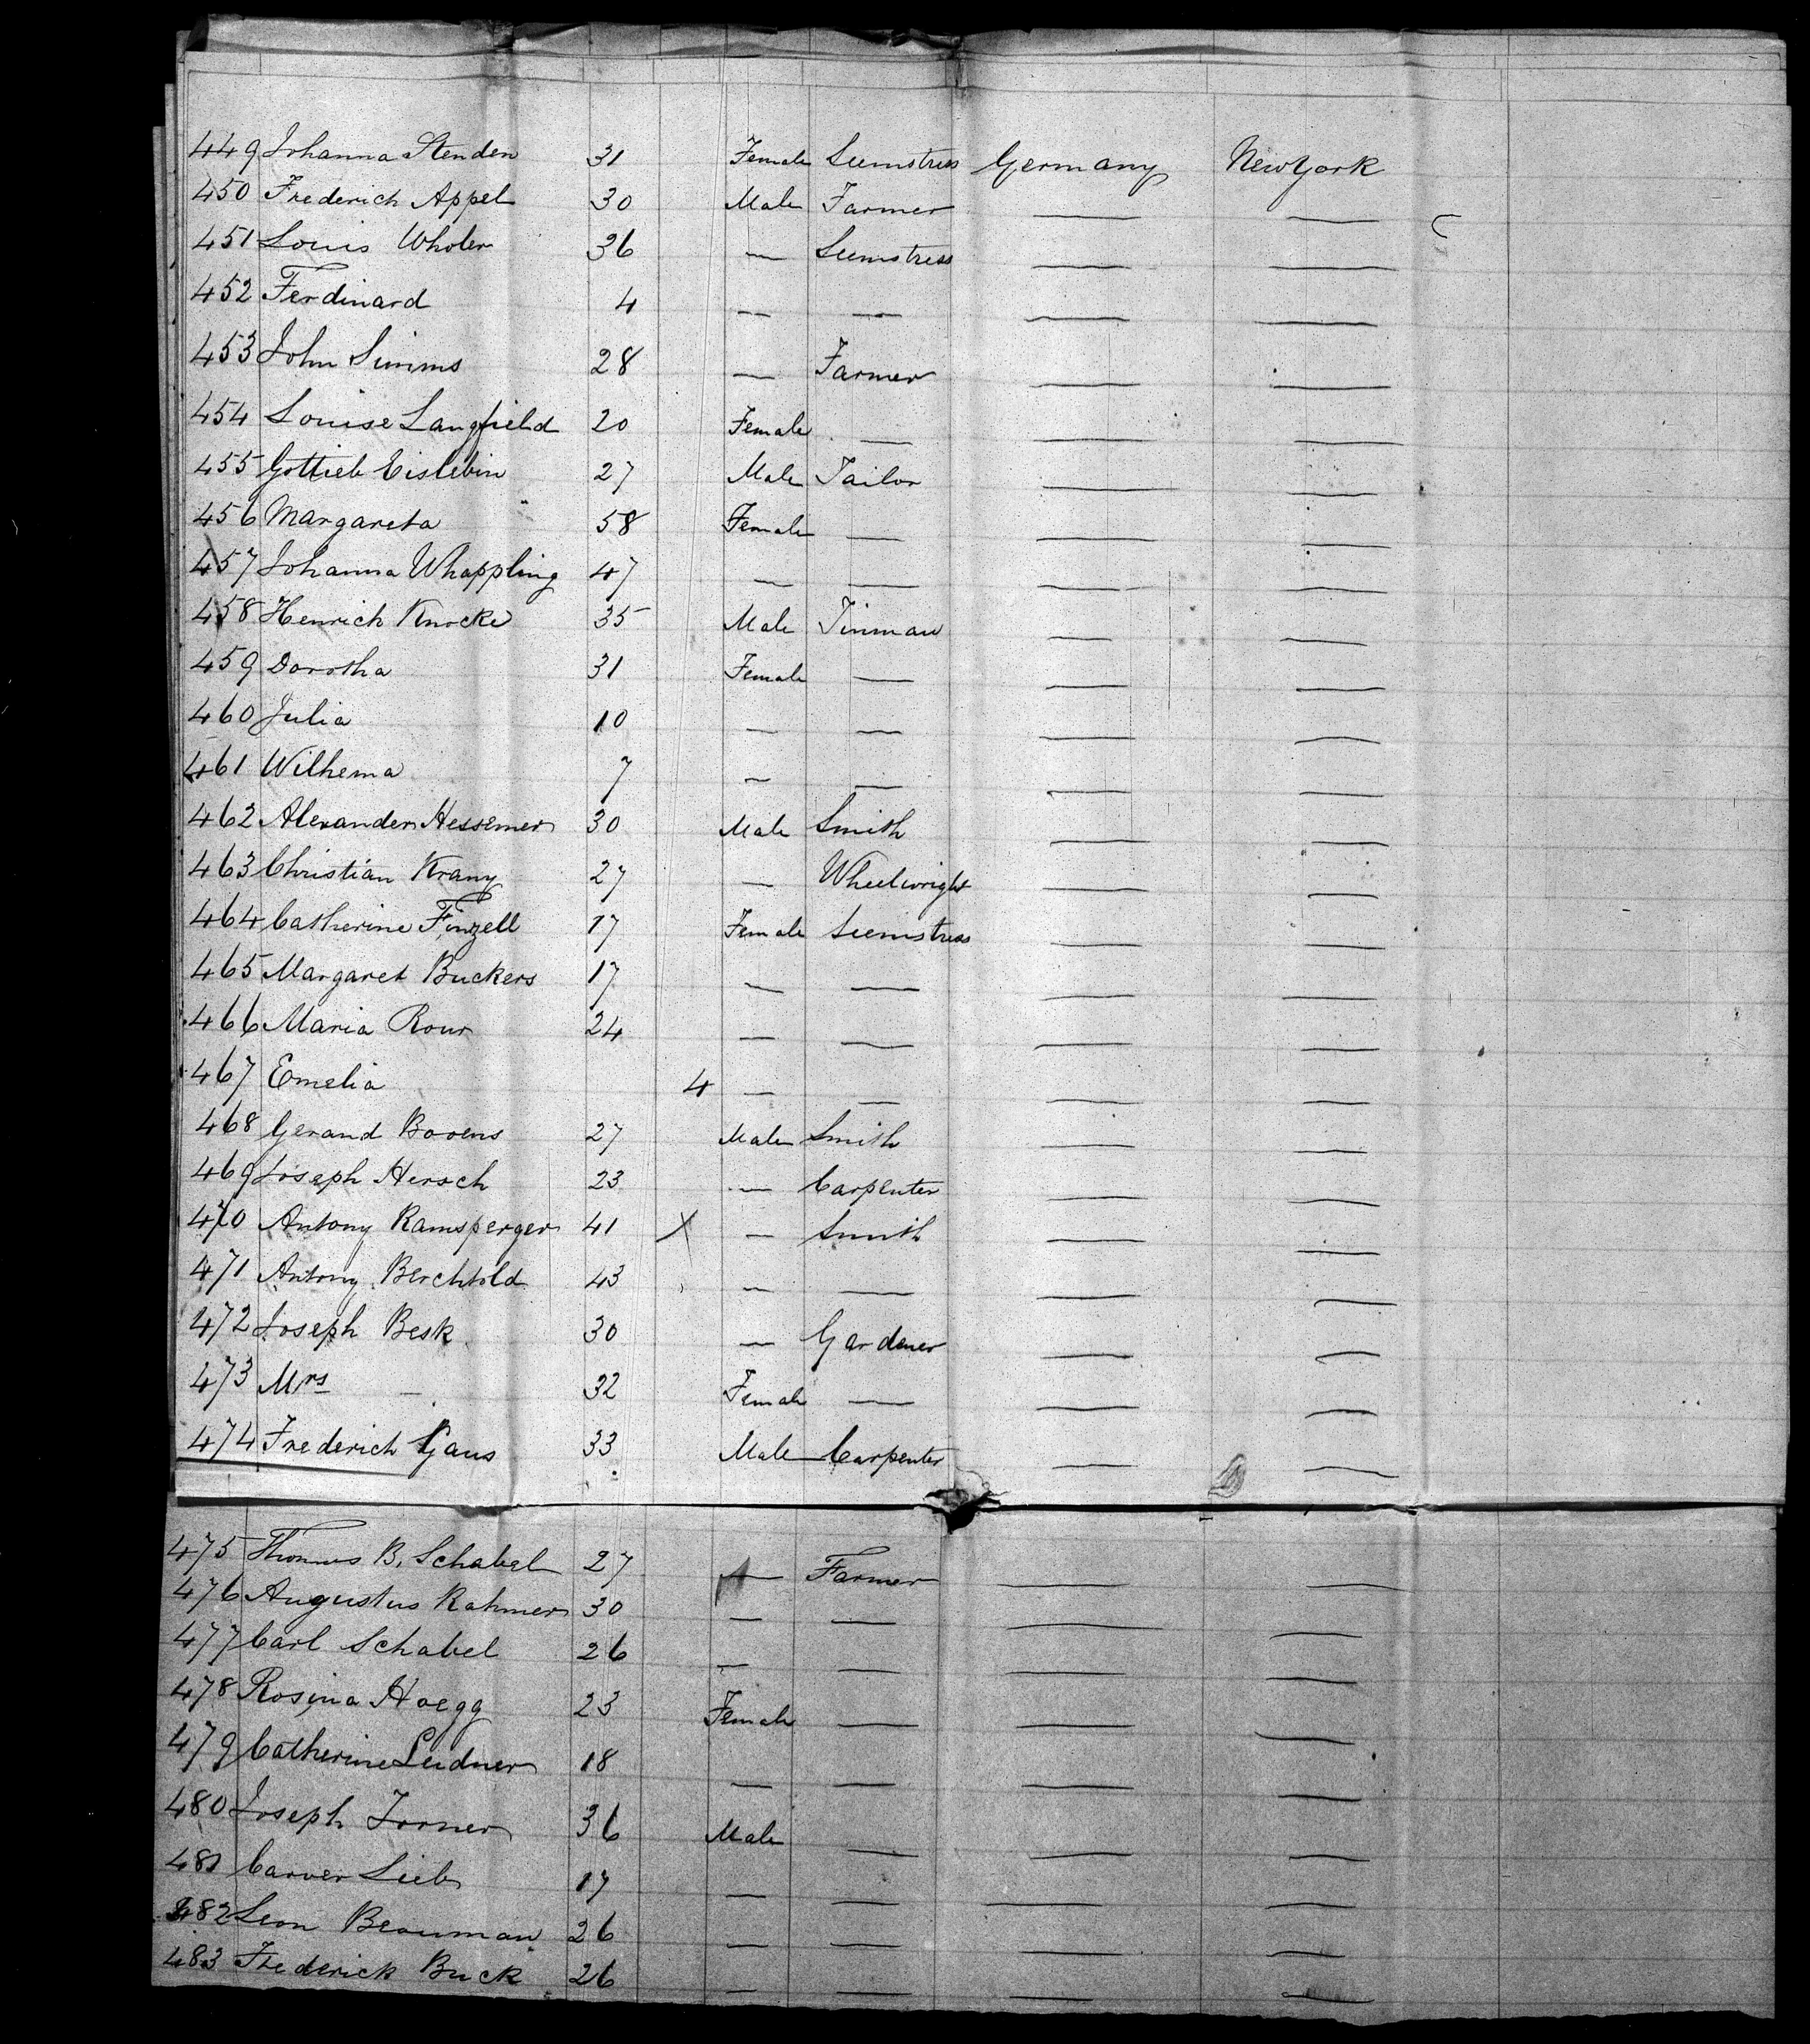 449 Johanna Stenden 31 Female Seemstress Germany New York
450 Frederich Appel 30 Male Farmer — —
451 Louis Wholer 36 — Seemstress — —
452 Ferdinard 4 — — — —
453 John Simms 28 — Farmer — —
454 Louise Langfield 20 Female — — —
455 Gottieb Eislebin 27 Male Tailor — —
456 Margareta 58 Female — — —
457 Johanna Whappling 47 — — — —
458 Henrich Knocke 35 Male Tinman — —
459 Dorotha 31 Female — — —
460 Julia 10 — — — —
461 Wilhema 7 — — — —
462 Alexander Hessemer 30 Male Smith — —
463 Christian Krany 27 — Wheelwright — —
464 Catherine Finzell 17 Female Seemstress — —
465 Margaret Buckers 17 — — — —
466 Maria Rour 24 — — — —
467 Emelia 4 — — — —
468 Gerand Bovens 27 Male Smith — —
469 Joseph Hersch 23 — Carpenter — —
470 Antony Ramsperger 41 X — Smith — —
471 Antony Berchtold 43 — — — —
472 Joseph Besk 30 — Gardener — —
473 Mrs — 32 Female — — —
474 Frederich Gaus 33 Male Carpenter — —
475 Thomas B. Schabel 27 — Farmer — —
476 Augustus Rahmer 30 — — — —
477 Carl Schabel 26 — — — —
478 Rosina Hoegg 23 Female — — —
479 Catherine Leidner 18 — — — —
480 Joseph Zorner 36 Male — — —
481 Carver Lieb 17 — — — —
482 Leon Brauman 26 — — — —
483 Frederick Buck 26 — — — —